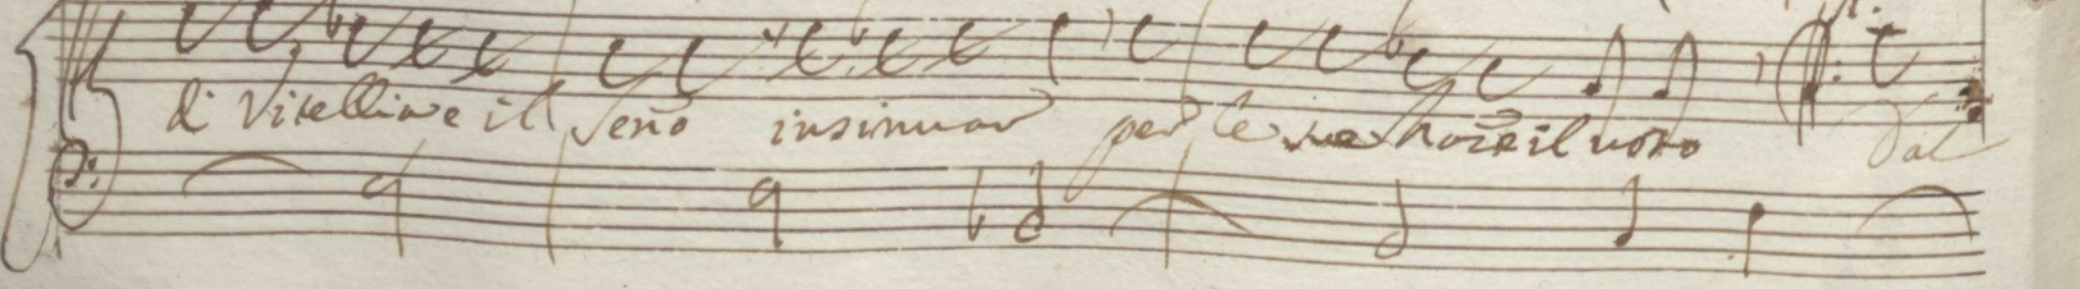 di Vitellia e il seno insinuar per le sue il voto Dal